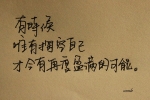 有时候
唯有拥空自己
才会有再度盈满的可能。